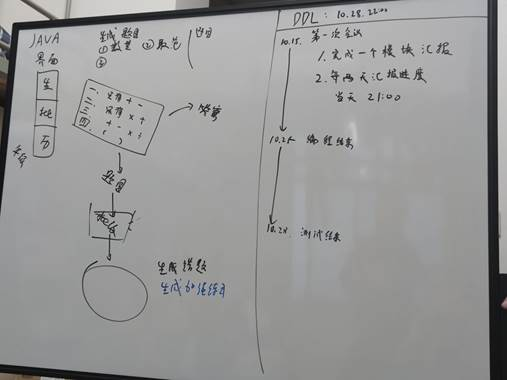 JAVA
界面
生
批
历
生成 题目
① 数量 ② 取范
③
一、只有 + -
二、只有 × ÷
三、+ - × ÷
四、( )
答案
题目
生成错题
生成
DDL: 10.28. 22:00
10.15. 第一次会议
1. 完成一个模块汇报
2. 每两天汇报进度
当天 21:00
10.25 编程结束
10.28. 测试结束